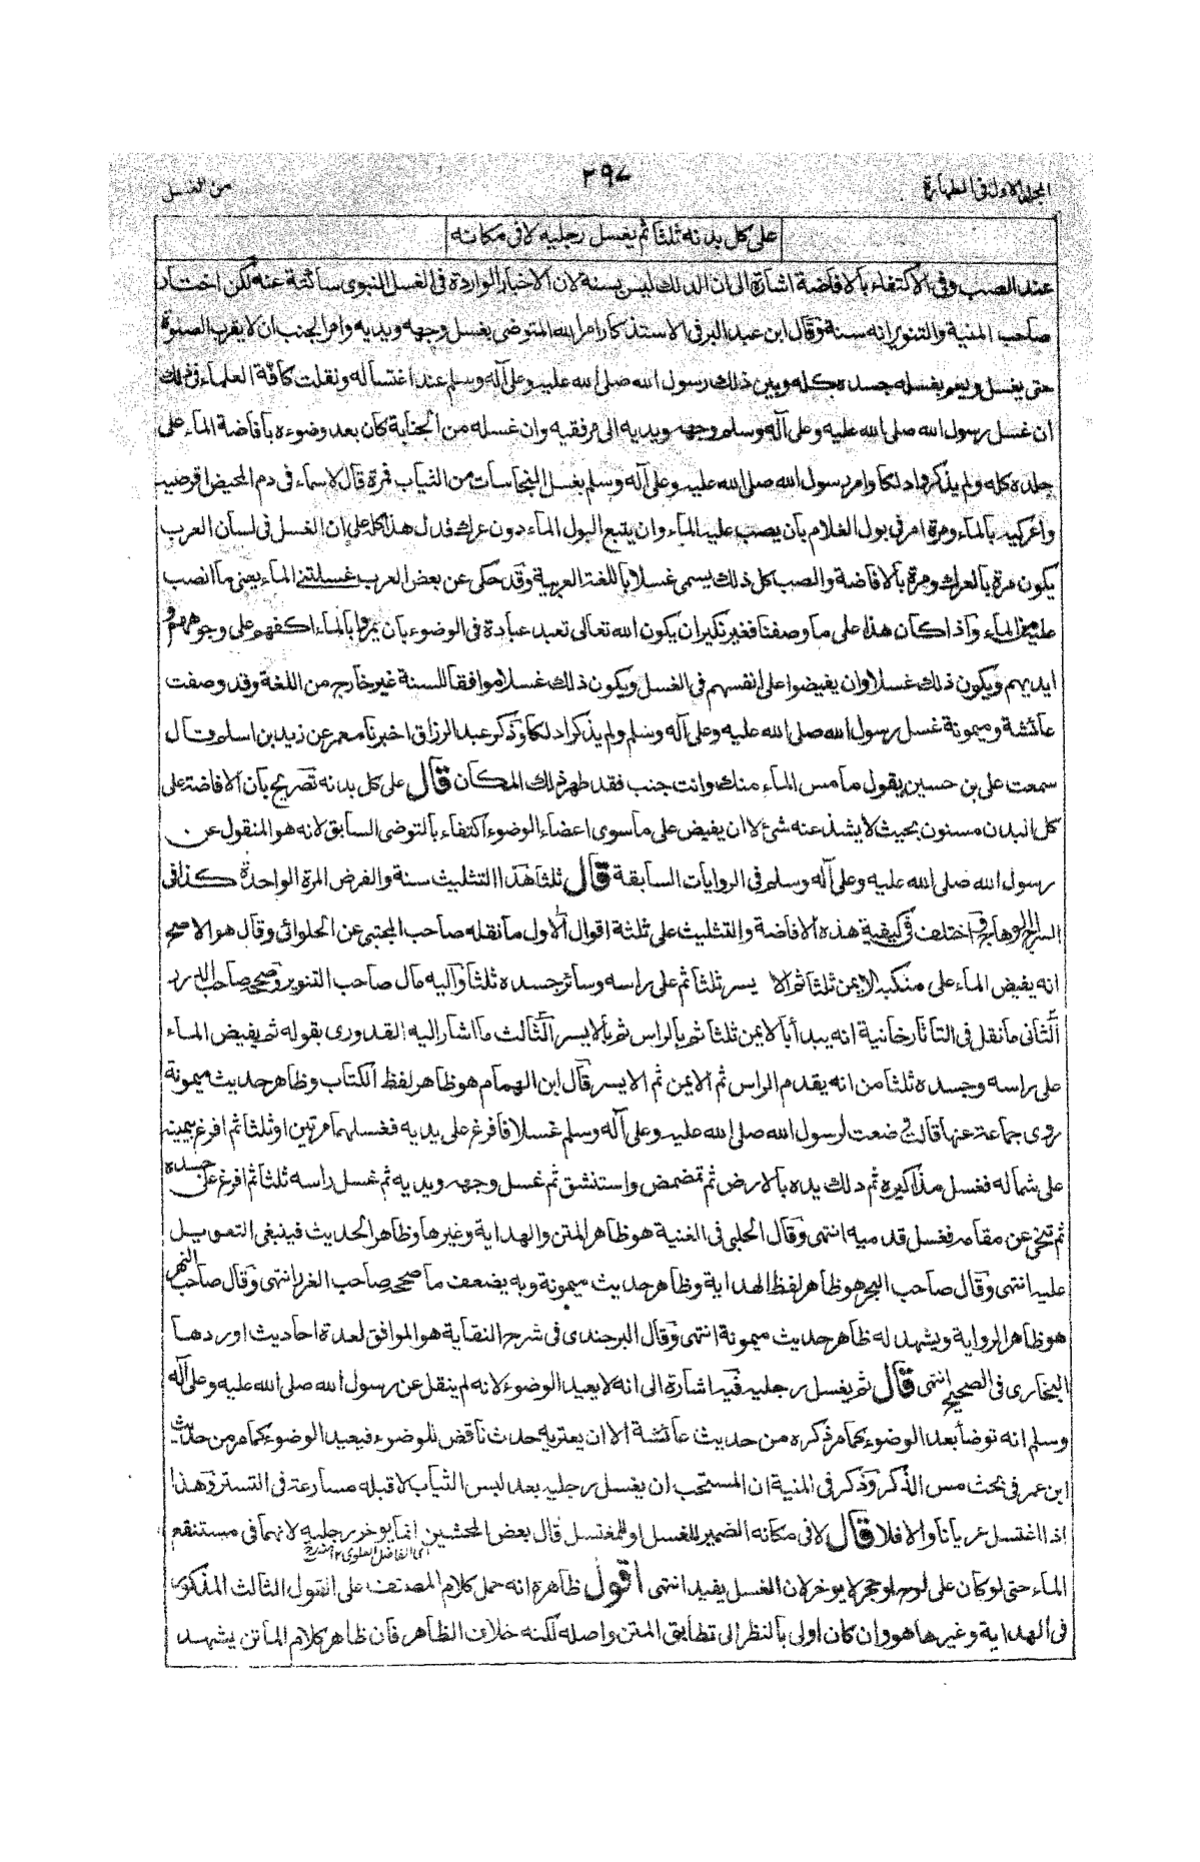 المجلد الاول فى الطهارة
٢٩٧
من الغسل
على كل بدنه ثلثا ثم يغسل رجليه لا فى مكانه
عند الصب وفى الاكتفاء بالافاضة اشارة الى ان الدلك ليس بسنة لان الاخبار الواردة فى الغسل النبوى ساكتة عنه لكن اختار
صاحب المنية والتنوير انه سنة وقال ابن عبد البر فى الاستذكار امر الله المتوضى بغسل وجهه ويديه وامر الجنب ان لا يقرب الصلوة
حتى يغتسل ويعم بغسله جسده كله وبين ذلك رسول الله صلى الله عليه وعلى آله وسلم عند اغتساله ونقلت كافة العلماء فى ذلك
ان غسل رسول الله صلى الله عليه وعلى آله وسلم وجهه ويديه الى مرفقيه وان غسله من الجنابة كان بعد وضوءه بافاضة الماء على
جلده كله ولم يذكروا دلكا وامر رسول الله صلى الله عليه وعلى آله وسلم بغسل النجاسات من الثياب فمرة قال لاسماء فى دم المحيض اقرصيه
واعركيه بالماء ومرة امر فى بول الغلام بان يصب عليه الماء وان يتبع البول الماء دون عرك فدل هذا كله على ان الغسل فى لسان العرب
يكون مرة بالعرك ومرة بالافاضة والصب كل ذلك يسمى غسلا باللغة العربية وقد حكى عن بعض العرب غسلتنى الماء يعنى ما انصب
عليه من الماء واذا كان هذا على ما وصفنا فغير نكير ان يكون الله تعالى تعبد عباده فى الوضوء بان يمروا بالماء اكفهم على وجوههم و
ايديهم ويكون ذلك غسلا وان يفيضوا على انفسهم فى الغسل ويكون ذلك غسلا موافقا للسنة غير خارج من اللغة وقد وصفت
عائشة وميمونة غسل رسول الله صلى الله عليه وعلى آله وسلم ولم يذكرا دلكا وذكر عبد الرزاق اخبرنا معمر عن زيد بن اسلم وقال
سمعت على بن حسين يقول ما مس الماء منك وانت جنب فقد طهر ذلك المكان قال على كل بدنه تصريح بان الافاضة على
كل البدن مسنون بحيث لا يشذ عنه شئ لا ان يفيض على ما سوى اعضاء الوضوء اكتفاء بالتوضى السابق لانه هو المنقول عن
رسول الله صلى الله عليه وعلى آله وسلم فى الروايات السابقة قال ثلثا هذا التثليث سنة والفرض المرة الواحدة كذا فى
السراج الوهاج واختلف فى كيفية هذه الافاضة والتثليث على ثلثة اقوال الاول ما نقله صاحب المجتبى عن الحلوائى وقال هو الاصح
انه يفيض الماء على منكبه الايمن ثلثا ثم الا يسر ثلثا ثم على راسه وسائر جسده ثلثا واليه مال صاحب التنوير وصححه صاحب الدرر
الثانى ما نقل فى التاتارخانية انه يبدأ بالايمن ثلثا ثم بالراس ثم بالايسر الثالث ما اشار اليه القدورى بقوله ثم يفيض الماء
على راسه وجسده ثلثا من انه يقدم الراس ثم الايمن ثم الايسر قال ابن الهمام هو ظاهر لفظ الكتاب وظاهر حديث ميمونة
روى جماعة عنها قالت وضعت لرسول الله صلى الله عليه وعلى آله وسلم غسلا فافرغ على يديه فغسلهما مرتين او ثلثا ثم افرغ بيمينه
على شماله فغسل مذاكيره ثم دلك يده بالارض ثم تمضمض واستنشق ثم غسل وجهه ويديه ثم غسل راسه ثلثا ثم افرغ على جسده
ثم تنحى عن مقامه فغسل قدميه انتهى وقال الحلبى فى الغنية هو ظاهر المتن والهداية وغيرها وظاهر الحديث فينبغى التعويل
عليه انتهى وقال صاحب البحر هو ظاهر لفظ الهداية وظاهر حديث ميمونة وبه يضعف ما صححه صاحب الغرر انتهى وقال صاحب النهر
هو ظاهر الرواية ويشهد له ظاهر حديث ميمونة انتهى وقال البرجندى فى شرح النقاية هو الموافق لعدة احاديث اوردها
البخارى فى الصحيح انتهى قال ثم يغسل رجليه فيه اشارة الى انه لا يعيد الوضوء لانه لم ينقل عن رسول الله صلى الله عليه وعلى آله
وسلم انه توضأ بعد الوضوء كما مر ذكره من حديث عائشة الا ان يعتريه حدث ناقض للوضوء فيعيد الوضوء كما مر من حديث
ابن عمر فى بحث مس الذكر وذكر فى المنية ان المستحب ان يغسل رجليه بعد لبس الثياب لا قبله مسارعة فى التستر وهذا
اذا اغتسل عريانا والا فلا قال لا فى مكانه الضمير للغسل او للمغتسل قال بعض المحشين انما يوخر رجليه لانهما فى مستنقع
اى الفاضل العلوى ١٢ منه رح
الماء حتى لو كان على لوح او حجر لا يوخر لان الغسل يفيد انتهى اقول ظاهره انه حمل كلام المصنف على القول الثالث المذكور
فى الهداية وغيرها وهو وان كان اولى بالنظر الى تطابق المتن واصله لكنه خلاف الظاهر فان ظاهر كلام الماتن يشهد